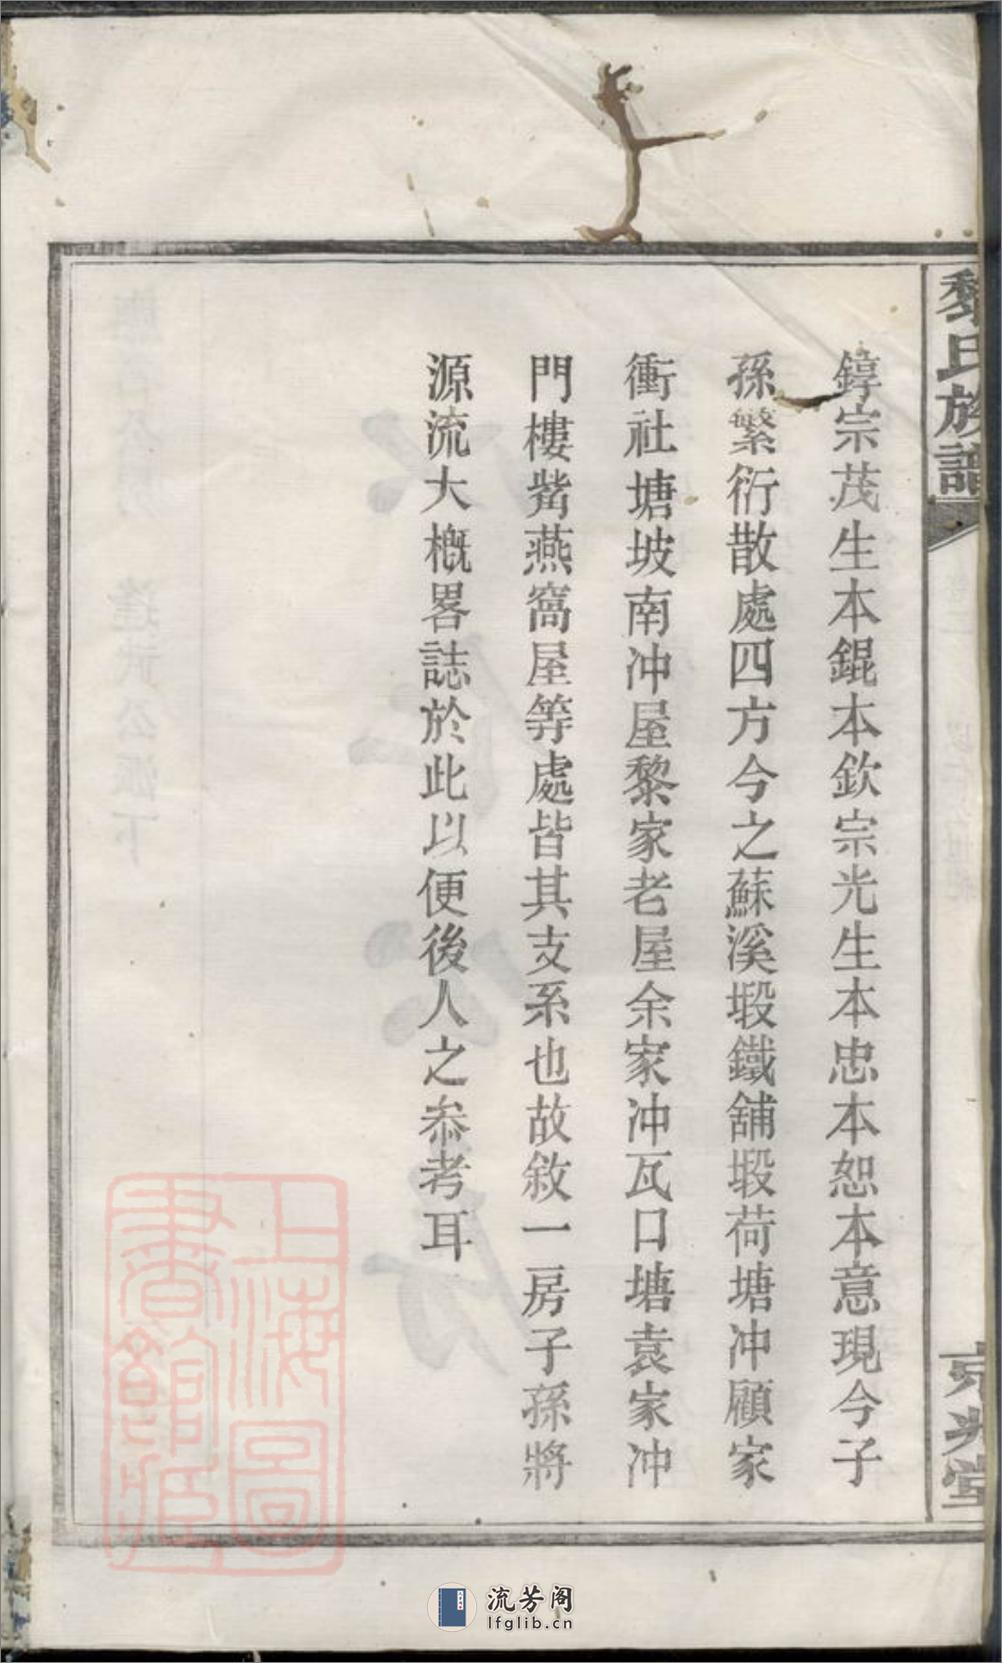 黎氏族譜
京兆堂
錞宗茂生本錕本欽宗光生本忠本恕本意現今子
孫繁衍散處四方今之蘇溪塅鐵舖塅荷塘冲顧家
衝社塘坡南冲屋黎家老屋余家冲瓦口塘袁家冲
門樓觜燕窩屋等處皆其支系也故敘一房子孫將
源流大槪畧誌於此以便後人之叅考耳
上海圖
書館藏
流芳阁
lfglib.cn